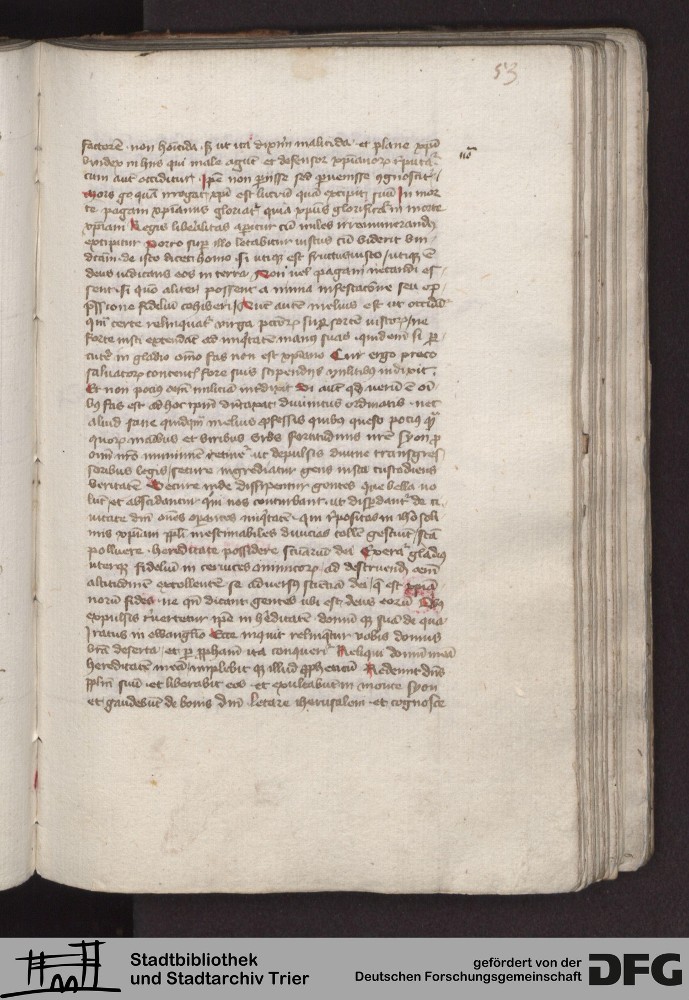 53
factorē · non hoīcida · sꝫ ut ita dixerim malicida · et plane xpī
vindex in hijs qui male agūt et defensor xpianorꝫ reputat͛
cum aut occiditur · Ipē non perijsse sed pervenisse cognoscit͛
Mors ergo quā irrogat xpī est lucrū quā excipit suū In mor
te pagani xpianus gloriat͛ quia xpūs glorificat͛ in morte
xpiani Regis liberalitas aperitur cū miles remunerandꝰ
excipitur Porro super illo letabitur iustus cū viderit vin
dictam · de isto dicet homo · si utiqꝫ est fructus iusto / utiqꝫ ē
deus iudicans eos in terra Non vel pagani necandi es
sent · si quo aliter possent a nimia infestatione seu op
pressione fideliū cohiberi Nūc autē melius est ut occidāt͛
quā certe relinquat͛ virga peccatorꝫ super sortē iustorꝫ / ne
forte iusti extendāt ad iniquitatē manus suas · quid enī si per
cutere in gladio omīo fas non est xpiano Cur ergo preco
saluatoris contentos fore suis stipendijs militibus indixit
Et non pocius oēm miliciā interdixit Si aūt qd verū ē oī
bus fas est ad hoc ipsum dumtaxat divinitus ordinatis · nec
aliud sane quidquā melius professis quibus queso pocius quā
quorꝫ manibus et viribus urbs fortitudinis nrē syon pro
oīm nrō munimine retinetur ut depulsis divine transgres
soribus legis / secure ingrediatur gens iusta custodiens
veritatē Secure inde dissipentur gentes que bella vo
lūt et abscidantur qui nos conturbant · ut disperdant͛ de ci
uitate dnī oēs operantes iniquitatē · qui repositas in iherosoli
mis xpiani ppli inestimabiles divicias tollere gestiūt / scā
polluere · hereditate possidere sctuariū dei Exeratur gladiꝰ
uterqꝫ fideliū in cervices inimicorꝫ · ad destruendā oēm
altitudinē extollentē se adversus scientiā dei · que est xpia
norū fides · ne quā dicant gentes ubi est deus eorū Quibꝰ
expulsis revertetur ipse in hereditatē · domū qꝫ suā de qua
iratus in ewangelio Ecce inquit relinquetur vobis domus
vrā deserta / et per pphetam ita conqueritur Reliqui domū meā
hereditatē meā / implebit qꝫ illud propheticū Redemit dnūs
pplm suū · et liberabit eos · et exultabūt in monte syon
et gaudebūt de bonis dnī letare iherusalem · et cognosce
Stadtbibliothek
und Stadtarchiv Trier
gefördert von der
Deutschen Forschungsgemeinschaft
DFG